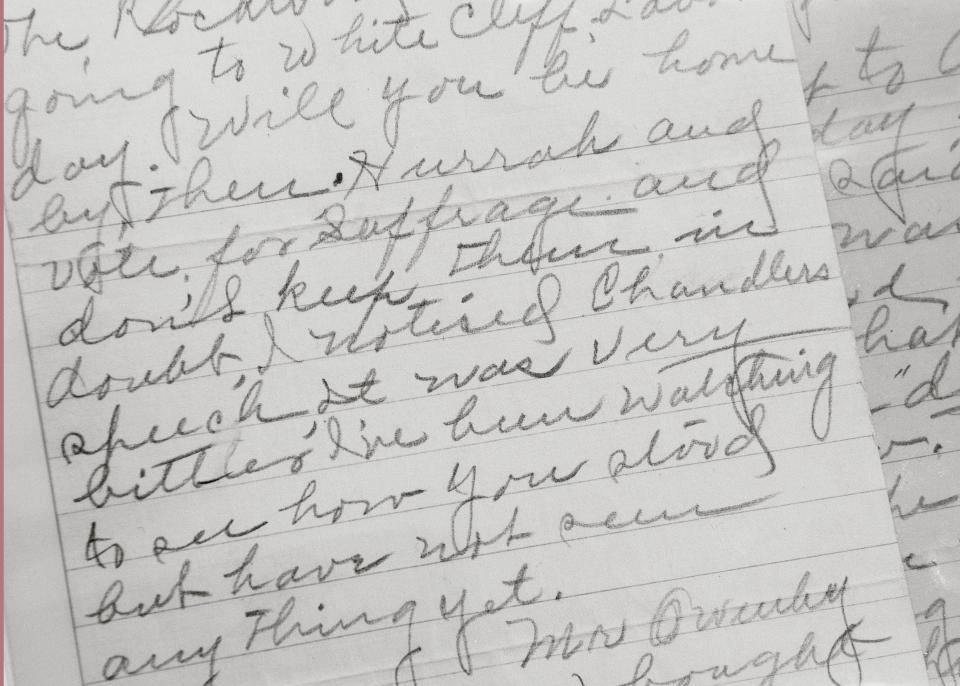 the
going to White Cliff
day. Will you be home
by then. Hurrah and
vote for Suffrage and
don't keep them in
doubt, I notised Chandlers
speech, it was very
bitter, I've been watching
to see how you stood
but have not seen
any thing yet.
Mrs Ownby
bought
to
day
said
was